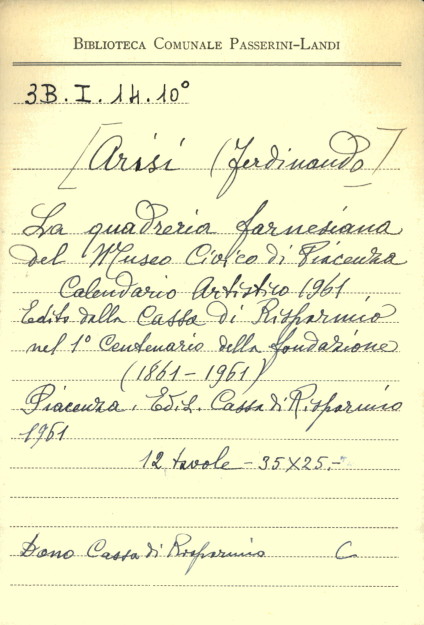 BIBLIOTECA COMUNALE PASSERINI-LANDI
3B. I. 14. 10°
[Arisi (Ferdinando)]
La quadreria farnesiana
del Museo Civico di Piacenza
Calendario Artistico 1961
Edito dalla Cassa di Risparmio
nel 1° Centenario della fondazione
(1861-1961)
Piacenza, Edit. Cassa di Risparmio
1961
12 tavole - 35X25.-
Dono Cassa di Risparmio C